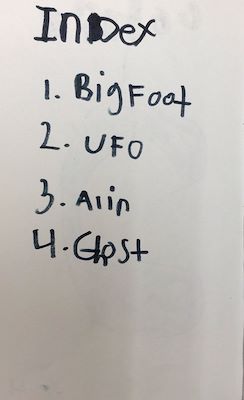 InDex
1. BigFoot
2. UFO
3. Aiin
4. GhoSt